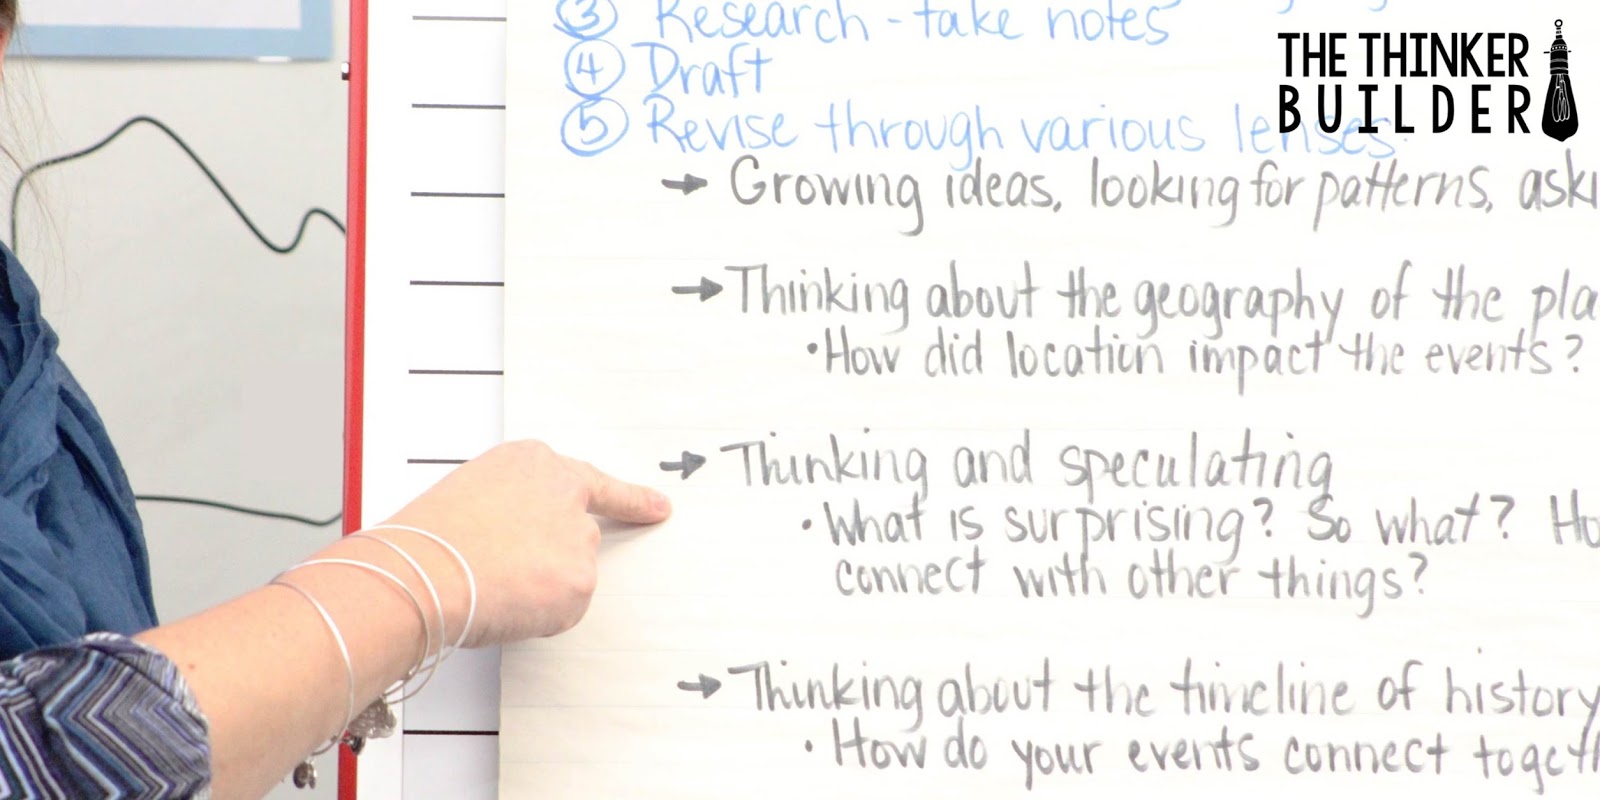 ③ Research - take notes
④ Draft
⑤ Revise through various lenses.
→ Growing ideas, looking for patterns, aski
→ Thinking about the geography of the pla
• How did location impact the events?
→ Thinking and speculating
• What is surprising? So what? Ho
connect with other things?
→ Thinking about the timeline of history
• How do your events connect togeth
THE THINKER
BUILDER